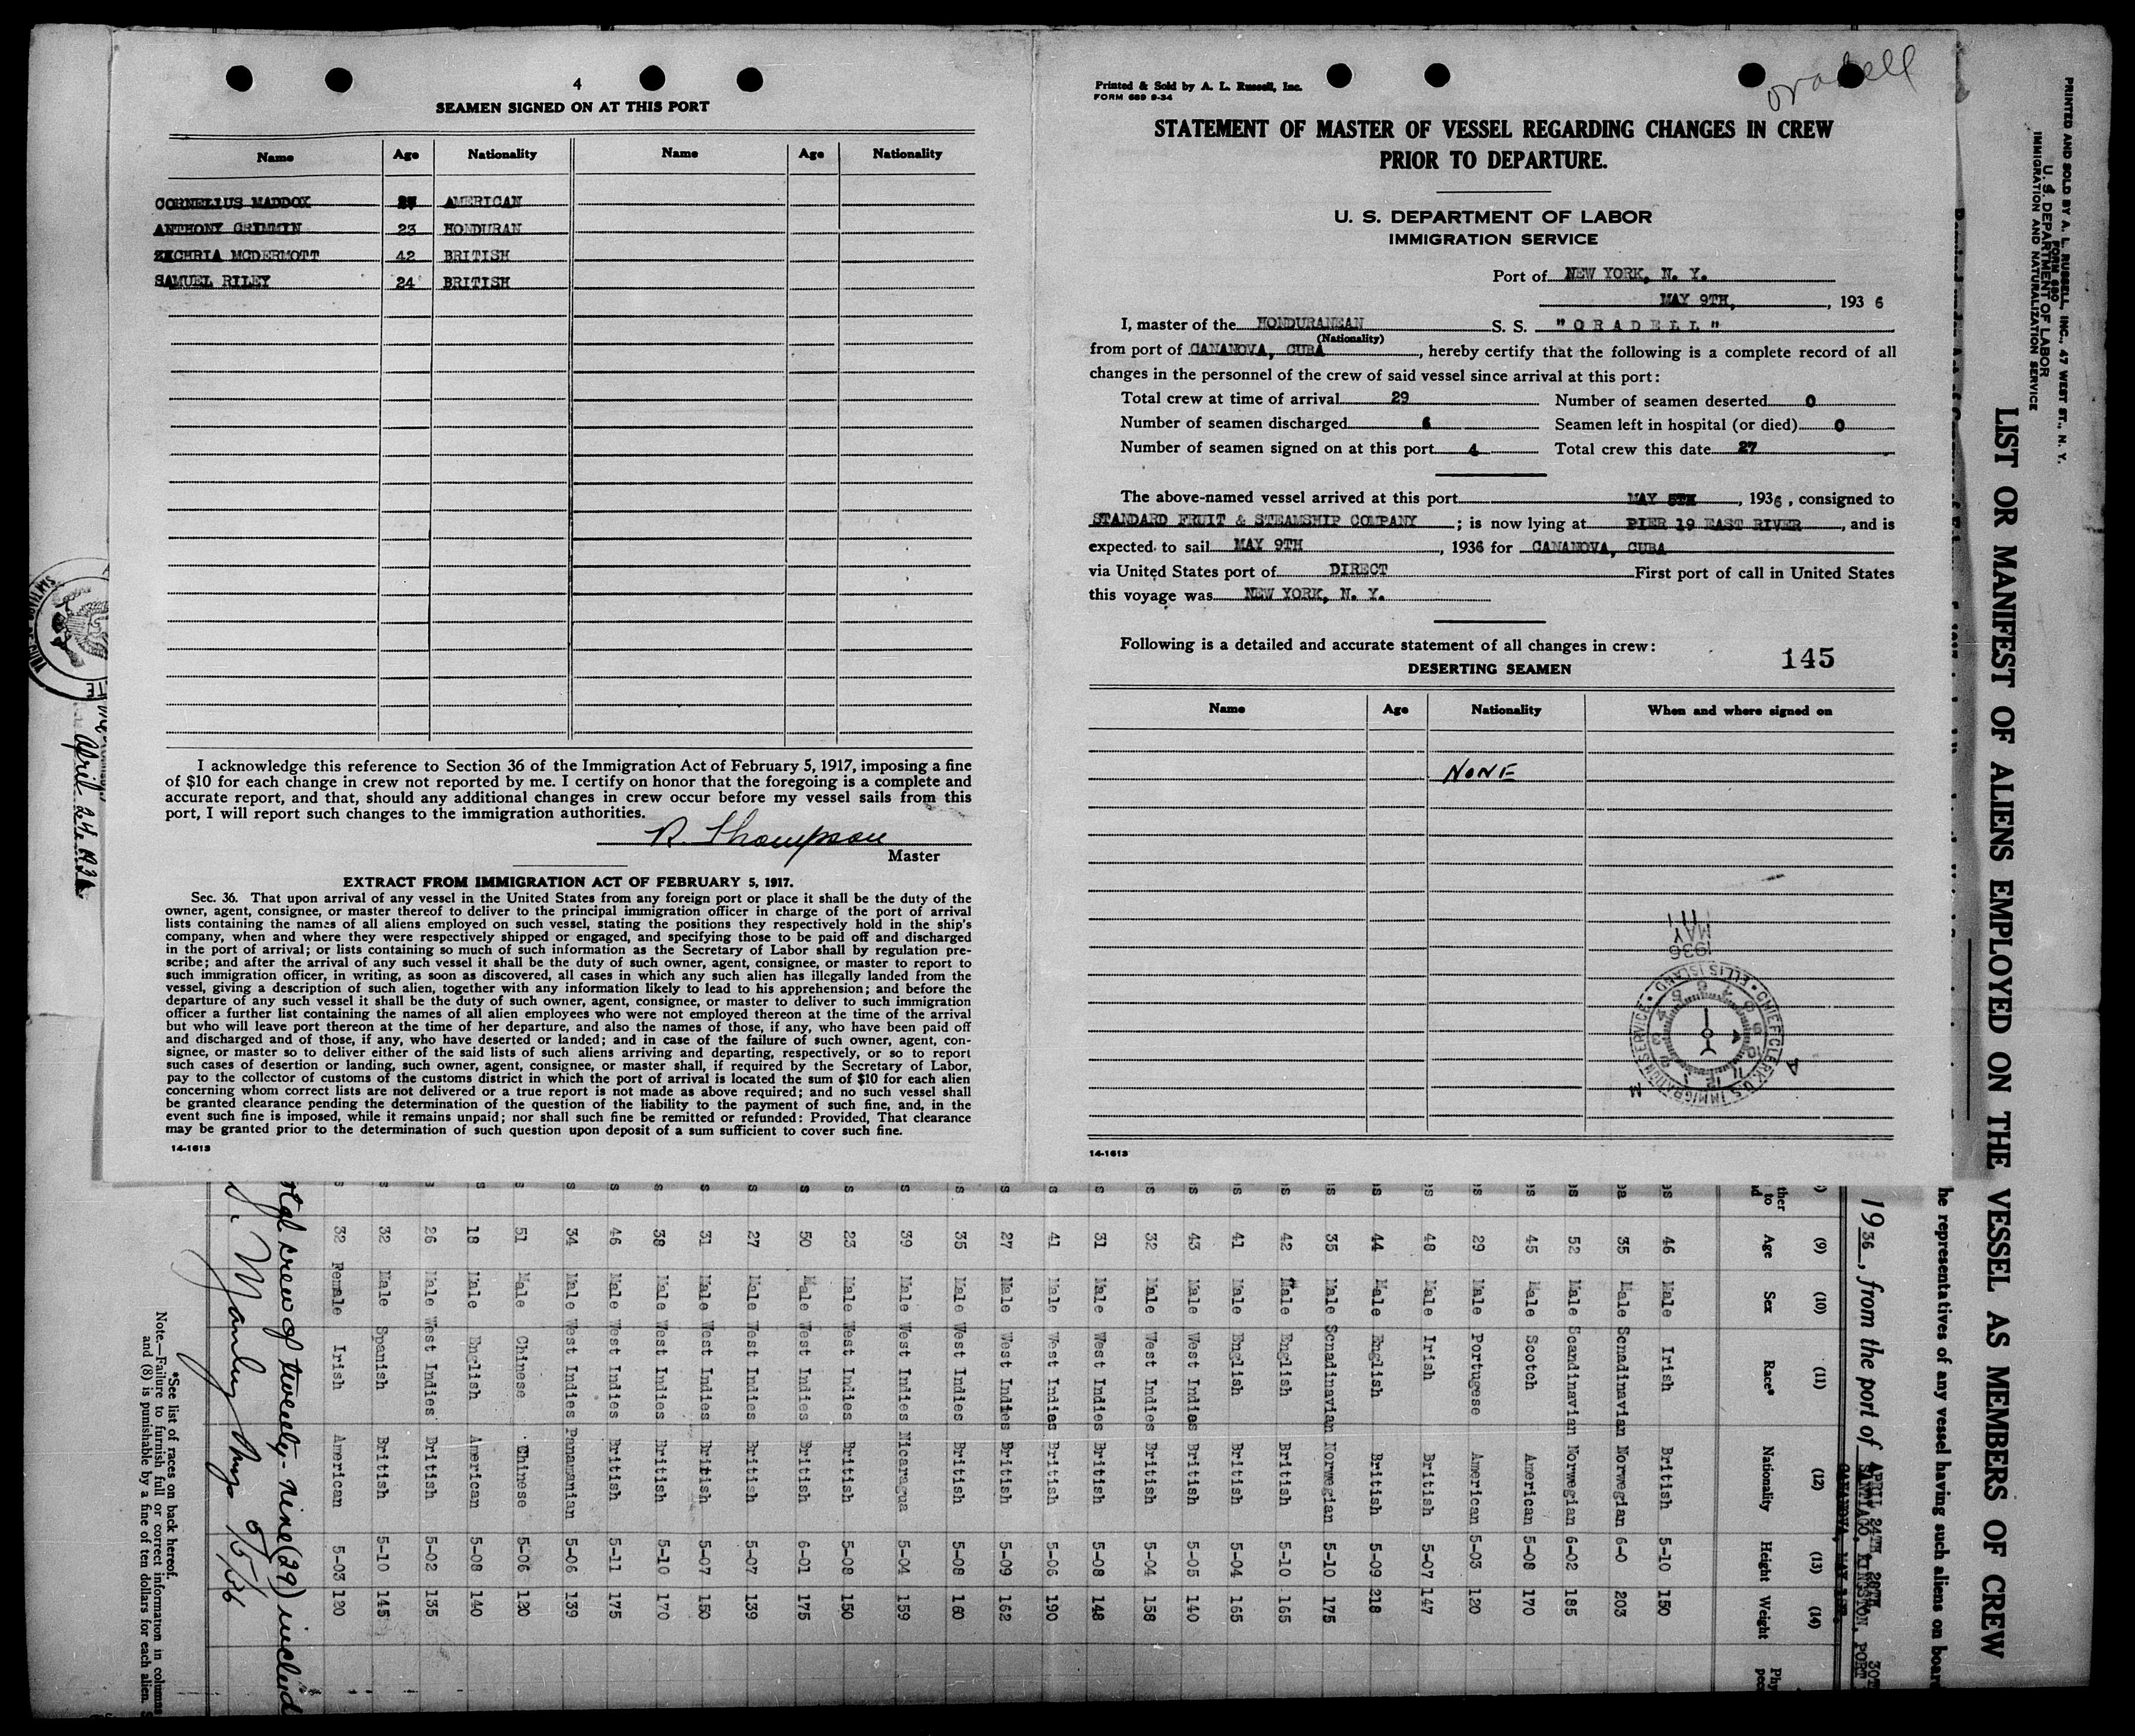 4
SEAMEN SIGNED ON AT THIS PORT
Name Age Nationality Name Age Nationality
CORNELIUS MADDOX AMERICAN
ANTHONY GRIMMIN 23 HONDURAN
ZECHRIA MCDERMOTT 42 BRITISH
SAMUEL RILEY 24 BRITISH
I acknowledge this reference to Section 36 of the Immigration Act of February 5, 1917, imposing a fine
of $10 for each change in crew not reported by me. I certify on honor that the foregoing is a complete and
accurate report, and that, should any additional changes in crew occur before my vessel sails from this
port, I will report such changes to the immigration authorities.
R. Thompson
Master
EXTRACT FROM IMMIGRATION ACT OF FEBRUARY 5, 1917.
Sec. 36. That upon arrival of any vessel in the United States from any foreign port or place it shall be the duty of the
owner, agent, consignee, or master thereof to deliver to the principal immigration officer in charge of the port of arrival
lists containing the names of all aliens employed on such vessel, stating the positions they respectively hold in the ship's
company, when and where they were respectively shipped or engaged, and specifying those to be paid off and discharged
in the port of arrival; or lists containing so much of such information as the Secretary of Labor shall by regulation pre-
scribe; and after the arrival of any such vessel it shall be the duty of such owner, agent, consignee, or master to report to
such immigration officer, in writing, as soon as discovered, all cases in which any such alien has illegally landed from the
vessel, giving a description of such alien, together with any information likely to lead to his apprehension; and before the
departure of any such vessel it shall be the duty of such owner, agent, consignee, or master to deliver to such immigration
officer a further list containing the names of all alien employees who were not employed thereon at the time of the arrival
but who will leave port thereon at the time of her departure, and also the names of those, if any, who have been paid off
and discharged and of those, if any, who have deserted or landed; and in case of the failure of such owner, agent, con-
signee, or master so to deliver either of the said lists of such aliens arriving and departing, respectively, or so to report
such cases of desertion or landing, such owner, agent, consignee, or master shall, if required by the Secretary of Labor,
pay to the collector of customs of the customs district in which the port of arrival is located the sum of $10 for each alien
concerning whom correct lists are not delivered or a true report is not made as above required; and no such vessel shall
be granted clearance pending the determination of the question of the liability to the payment of such fine, and, in the
event such fine is imposed, while it remains unpaid; nor shall such fine be remitted or refunded: Provided, That clearance
may be granted prior to the determination of such question upon deposit of a sum sufficient to cover such fine.
14-1613
Oradell
Printed & Sold by A. L. Russell, Inc.
FORM 689 9-34
STATEMENT OF MASTER OF VESSEL REGARDING CHANGES IN CREW
PRIOR TO DEPARTURE.
U. S. DEPARTMENT OF LABOR
IMMIGRATION SERVICE
Port of NEW YORK, N. Y.
MAY 9TH, 1936
I, master of the HONDURANEAN S. S. "ORADELL"
(Nationality)
from port of CANANOVA, CUBA, hereby certify that the following is a complete record of all
changes in the personnel of the crew of said vessel since arrival at this port:
Total crew at time of arrival 29 Number of seamen deserted 0
Number of seamen discharged 6 Seamen left in hospital (or died) 0
Number of seamen signed on at this port 4 Total crew this date 27
The above-named vessel arrived at this port MAY 5TH, 1936, consigned to
STANDARD FRUIT & STEAMSHIP COMPANY; is now lying at PIER 19 EAST RIVER, and is
expected to sail MAY 9TH, 1936 for CANANOVA, CUBA
via United States port of DIRECT First port of call in United States
this voyage was NEW YORK, N. Y.
Following is a detailed and accurate statement of all changes in crew:
145
DESERTING SEAMEN
Name Age Nationality When and where signed on
NONE
1936
MAY
11
CHIEF CLERK U.S. IMMIGRATION SERVICE • ELLIS ISLAND •
A M
14-1613
PRINTED AND SOLD BY A. L. RUSSELL, INC., 47 WEST ST., N. Y.
FORM 680
U. S. DEPARTMENT OF LABOR
IMMIGRATION AND NATURALIZATION SERVICE
LIST OR MANIFEST OF ALIENS EMPLOYED ON THE VESSEL AS MEMBERS OF CREW
he representatives of any vessel having such aliens on boar
1936, from the port of APRIL 24TH, 28TH, 30T
SANTIAGO, KINGSTON, PORT
(9) (10) (11) (12) (13) (14)
Age Sex Race* Nationality Height Weight
46 Male Irish British 5-10 150
35 Male Scnadinavian Norwegian 6-0 203
52 Male Scandinavian Norwegian 6-02 185
45 Male Scotch American 5-08 170
29 Male Portugese American 5-03 120
48 Male Irish British 5-07 147
44 Male English British 5-09 218
35 Male Scnadinavian Norwegian 5-10 175
42 Male English British 5-10 165
41 Male English British 5-04 165
43 Male West Indies British 5-05 140
32 Male West Indies British 5-04 158
31 Male West Indies British 5-08 148
41 Male West Indies British 5-06 190
27 Male West Indies British 5-09 162
35 Male West Indies British 5-08 160
39 Male West Indies Nicaragua 5-04 159
23 Male West Indies British 5-08 150
50 Male West Indies British 6-01 175
27 Male West Indies British 5-07 139
31 Male West Indies British 5-07 150
38 Male West Indies British 5-10 170
46 Male West Indies British 5-11 175
34 Male West Indies Panamanian 5-06 139
51 Male Chinese Chinese 5-06 120
18 Male English American 5-08 140
26 Male West Indies British 5-02 135
32 Male Spanish British 5-10 145
32 Female Irish American 5-03 120
otal crew of twenty-nine (29) includ
5/5/36
*See list of races on back hereof.
Note.—Failure to furnish full or correct information in columns
and (8) is punishable by a fine of ten dollars for each alien.
April 24, 1936